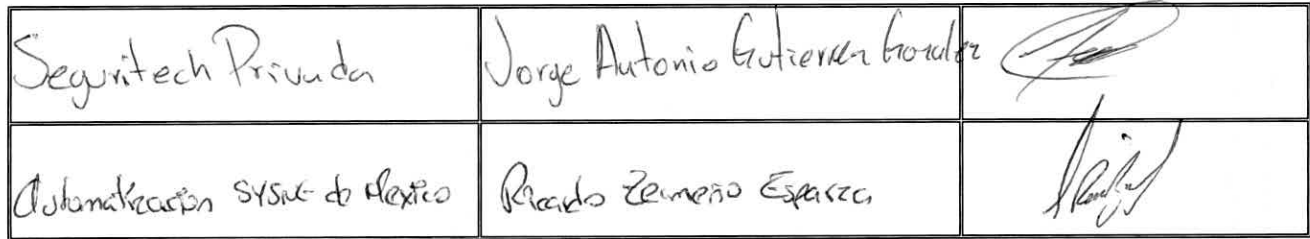 Seguritech Privada
Jorge Antonio Gutierrez Gonzalez
Automatización de Mexico
Ricardo Zermeño Esparza